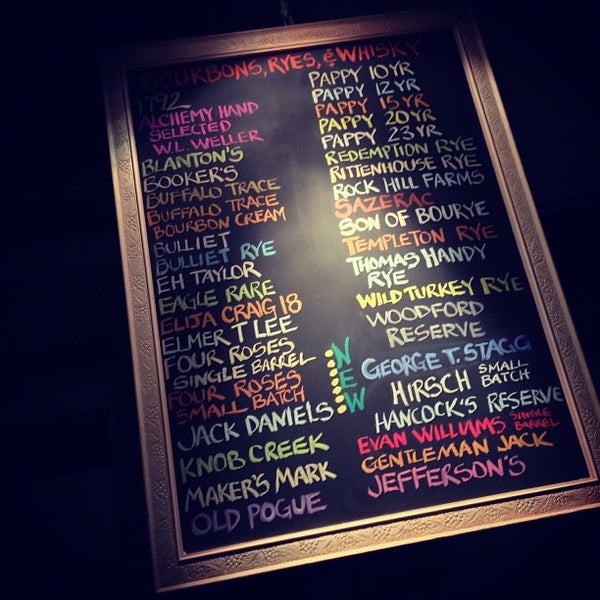 BOURBONS, RYES, & WHISKY
1792
ALCHEMY HAND
SELECTED
W.L. WELLER
BLANTON'S
BOOKER'S
BUFFALO TRACE
BUFFALO TRACE
BOURBON CREAM
BULLIET
BULLIET RYE
EH TAYLOR
EAGLE RARE
ELIJA CRAIG 18
ELMER T LEE
FOUR ROSES
SINGLE BARREL
FOUR ROSES
SMALL BATCH
JACK DANIELS
KNOB CREEK
MAKER'S MARK
OLD POGUE
PAPPY 10YR
PAPPY 12YR
PAPPY 15YR
PAPPY 20YR
PAPPY 23YR
REDEMPTION RYE
RITTENHOUSE RYE
ROCK HILL FARMS
SAZERAC
SON OF BOURYE
TEMPLETON RYE
THOMAS HANDY
RYE
WILD TURKEY RYE
WOODFORD
RESERVE
NEW
GEORGE T. STAGG
HIRSCH SMALL BATCH
HANCOCK'S RESERVE
EVAN WILLIAMS SINGLE BARREL
GENTLEMAN JACK
JEFFERSON'S